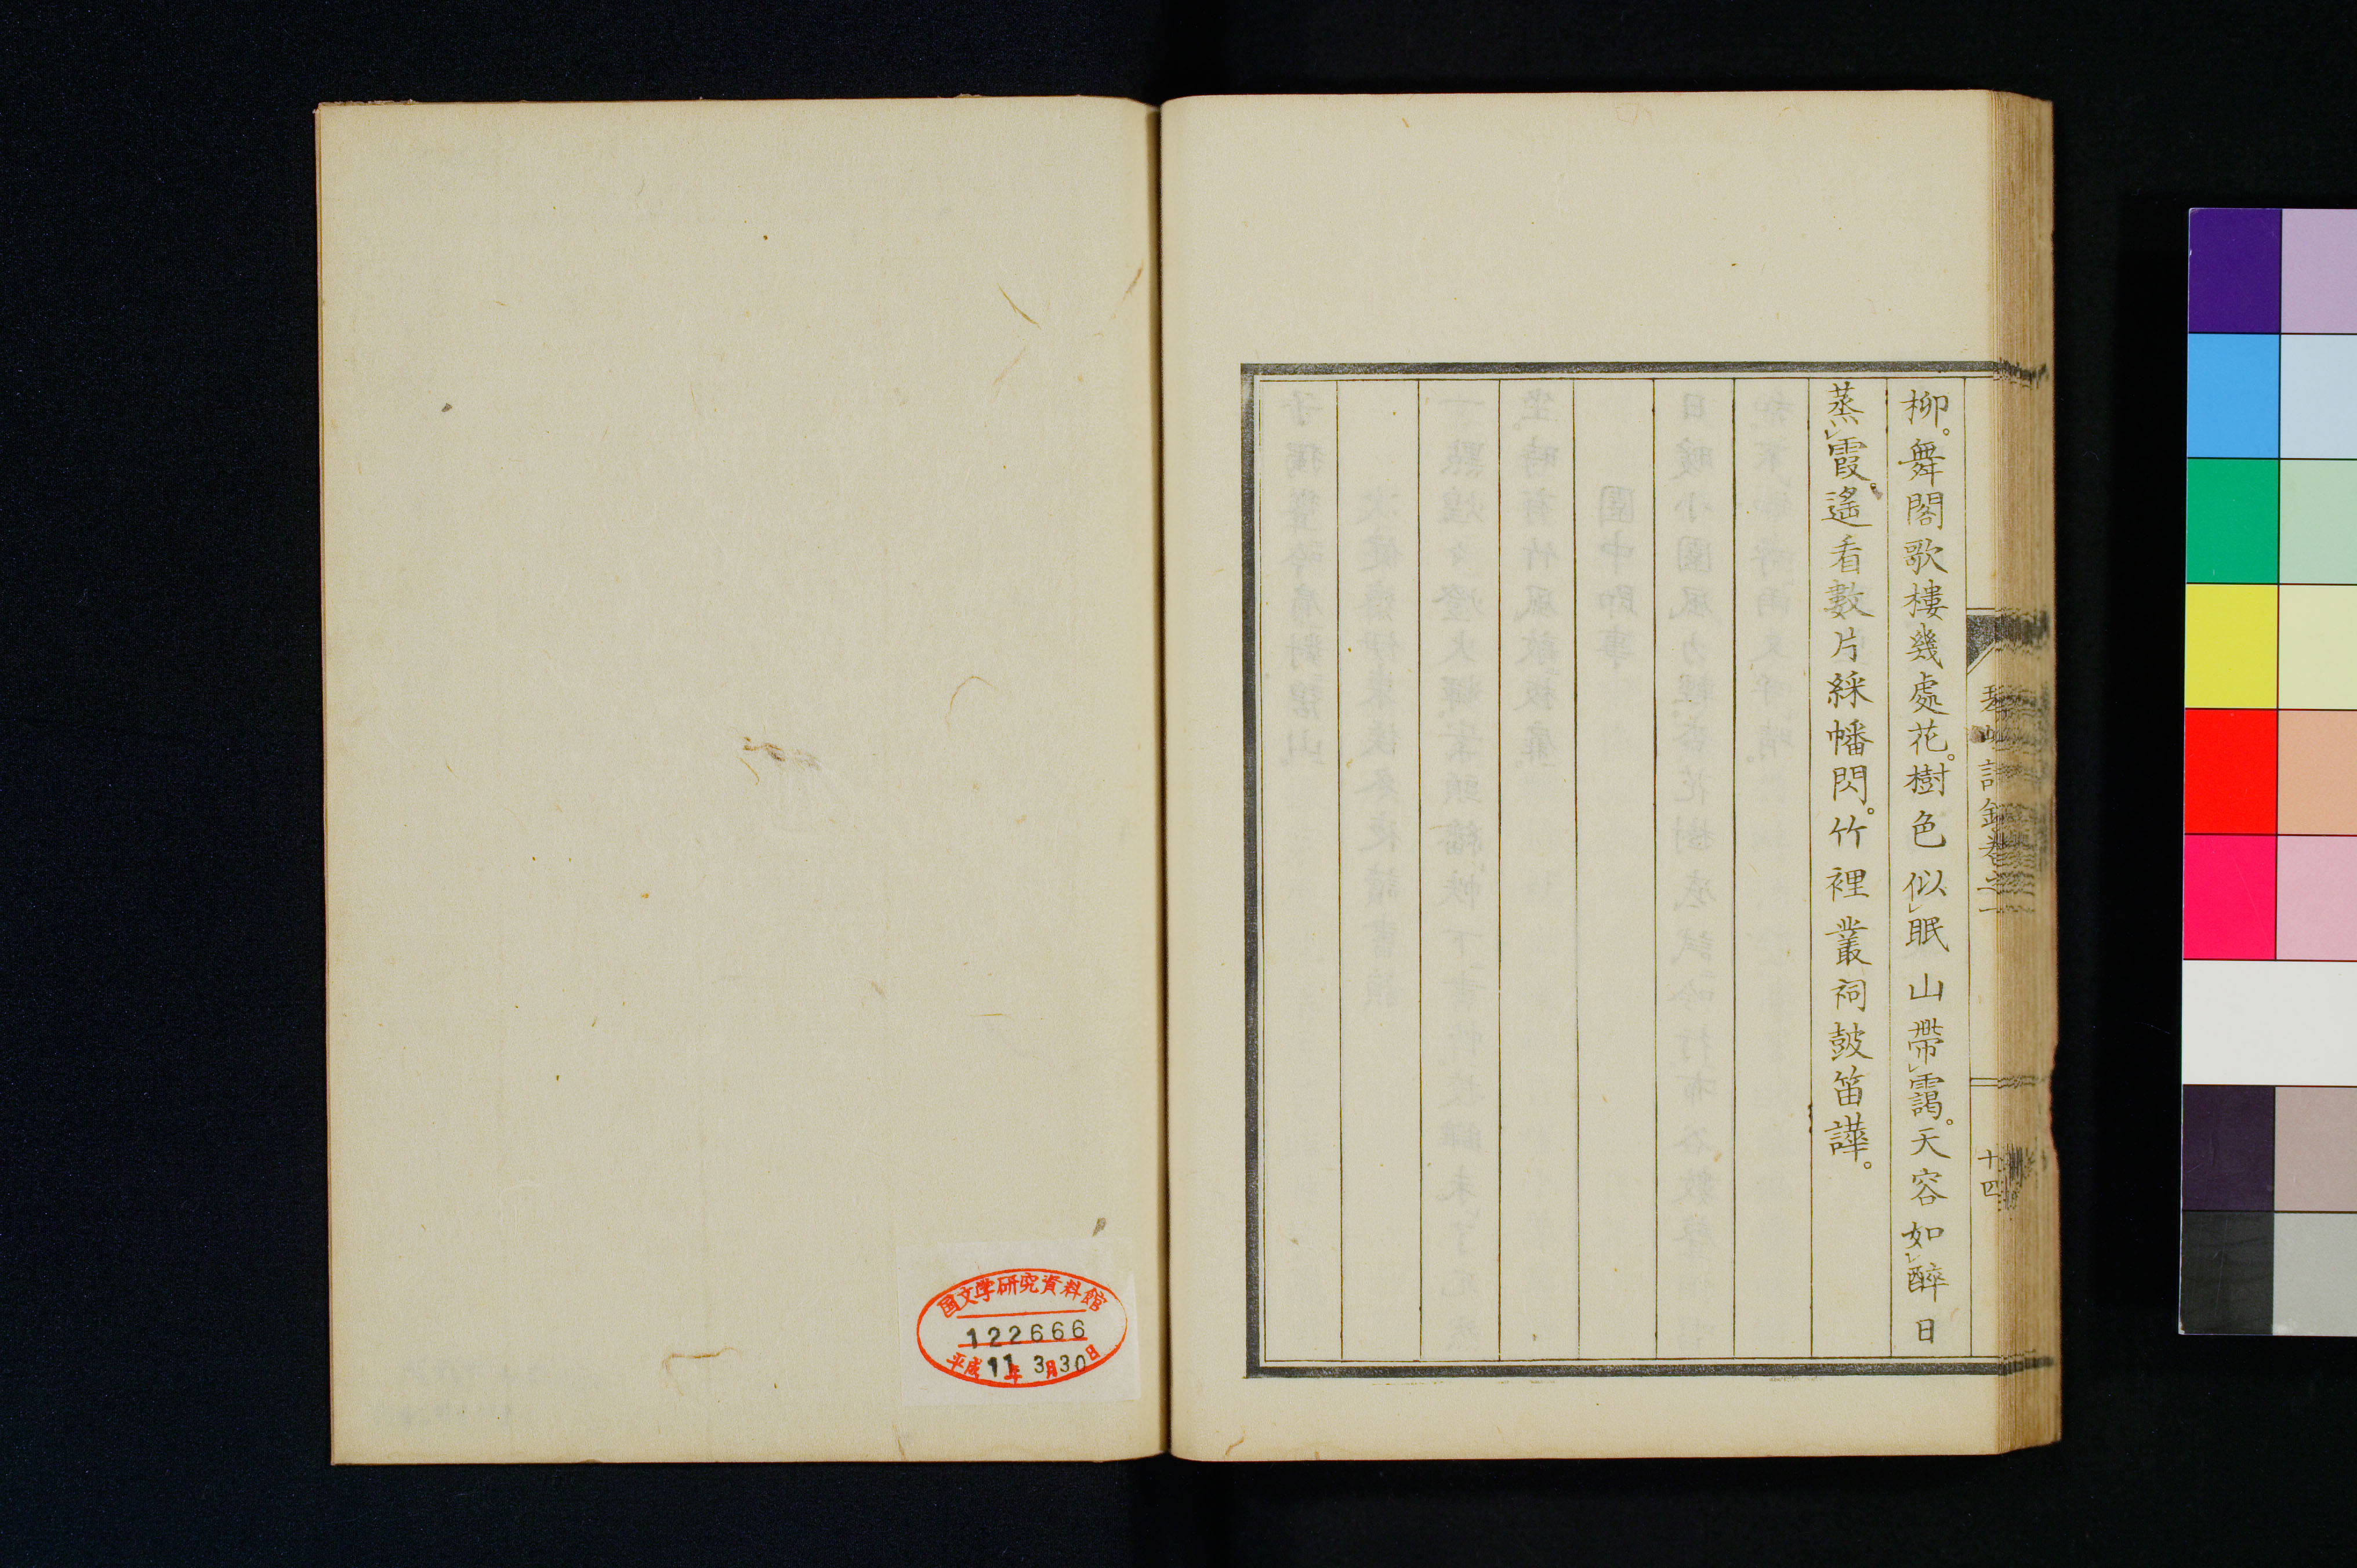 柳。舞閣歌樓幾處花。樹色似㆑眠山帶㆑靄。天容如㆑醉日
蒸㆑霞。遙看數片綵幡閃。竹裡叢祠鼓笛譁。
詩鈔卷之一
十四
国文学研究資料館
122666
平成11年3月30日